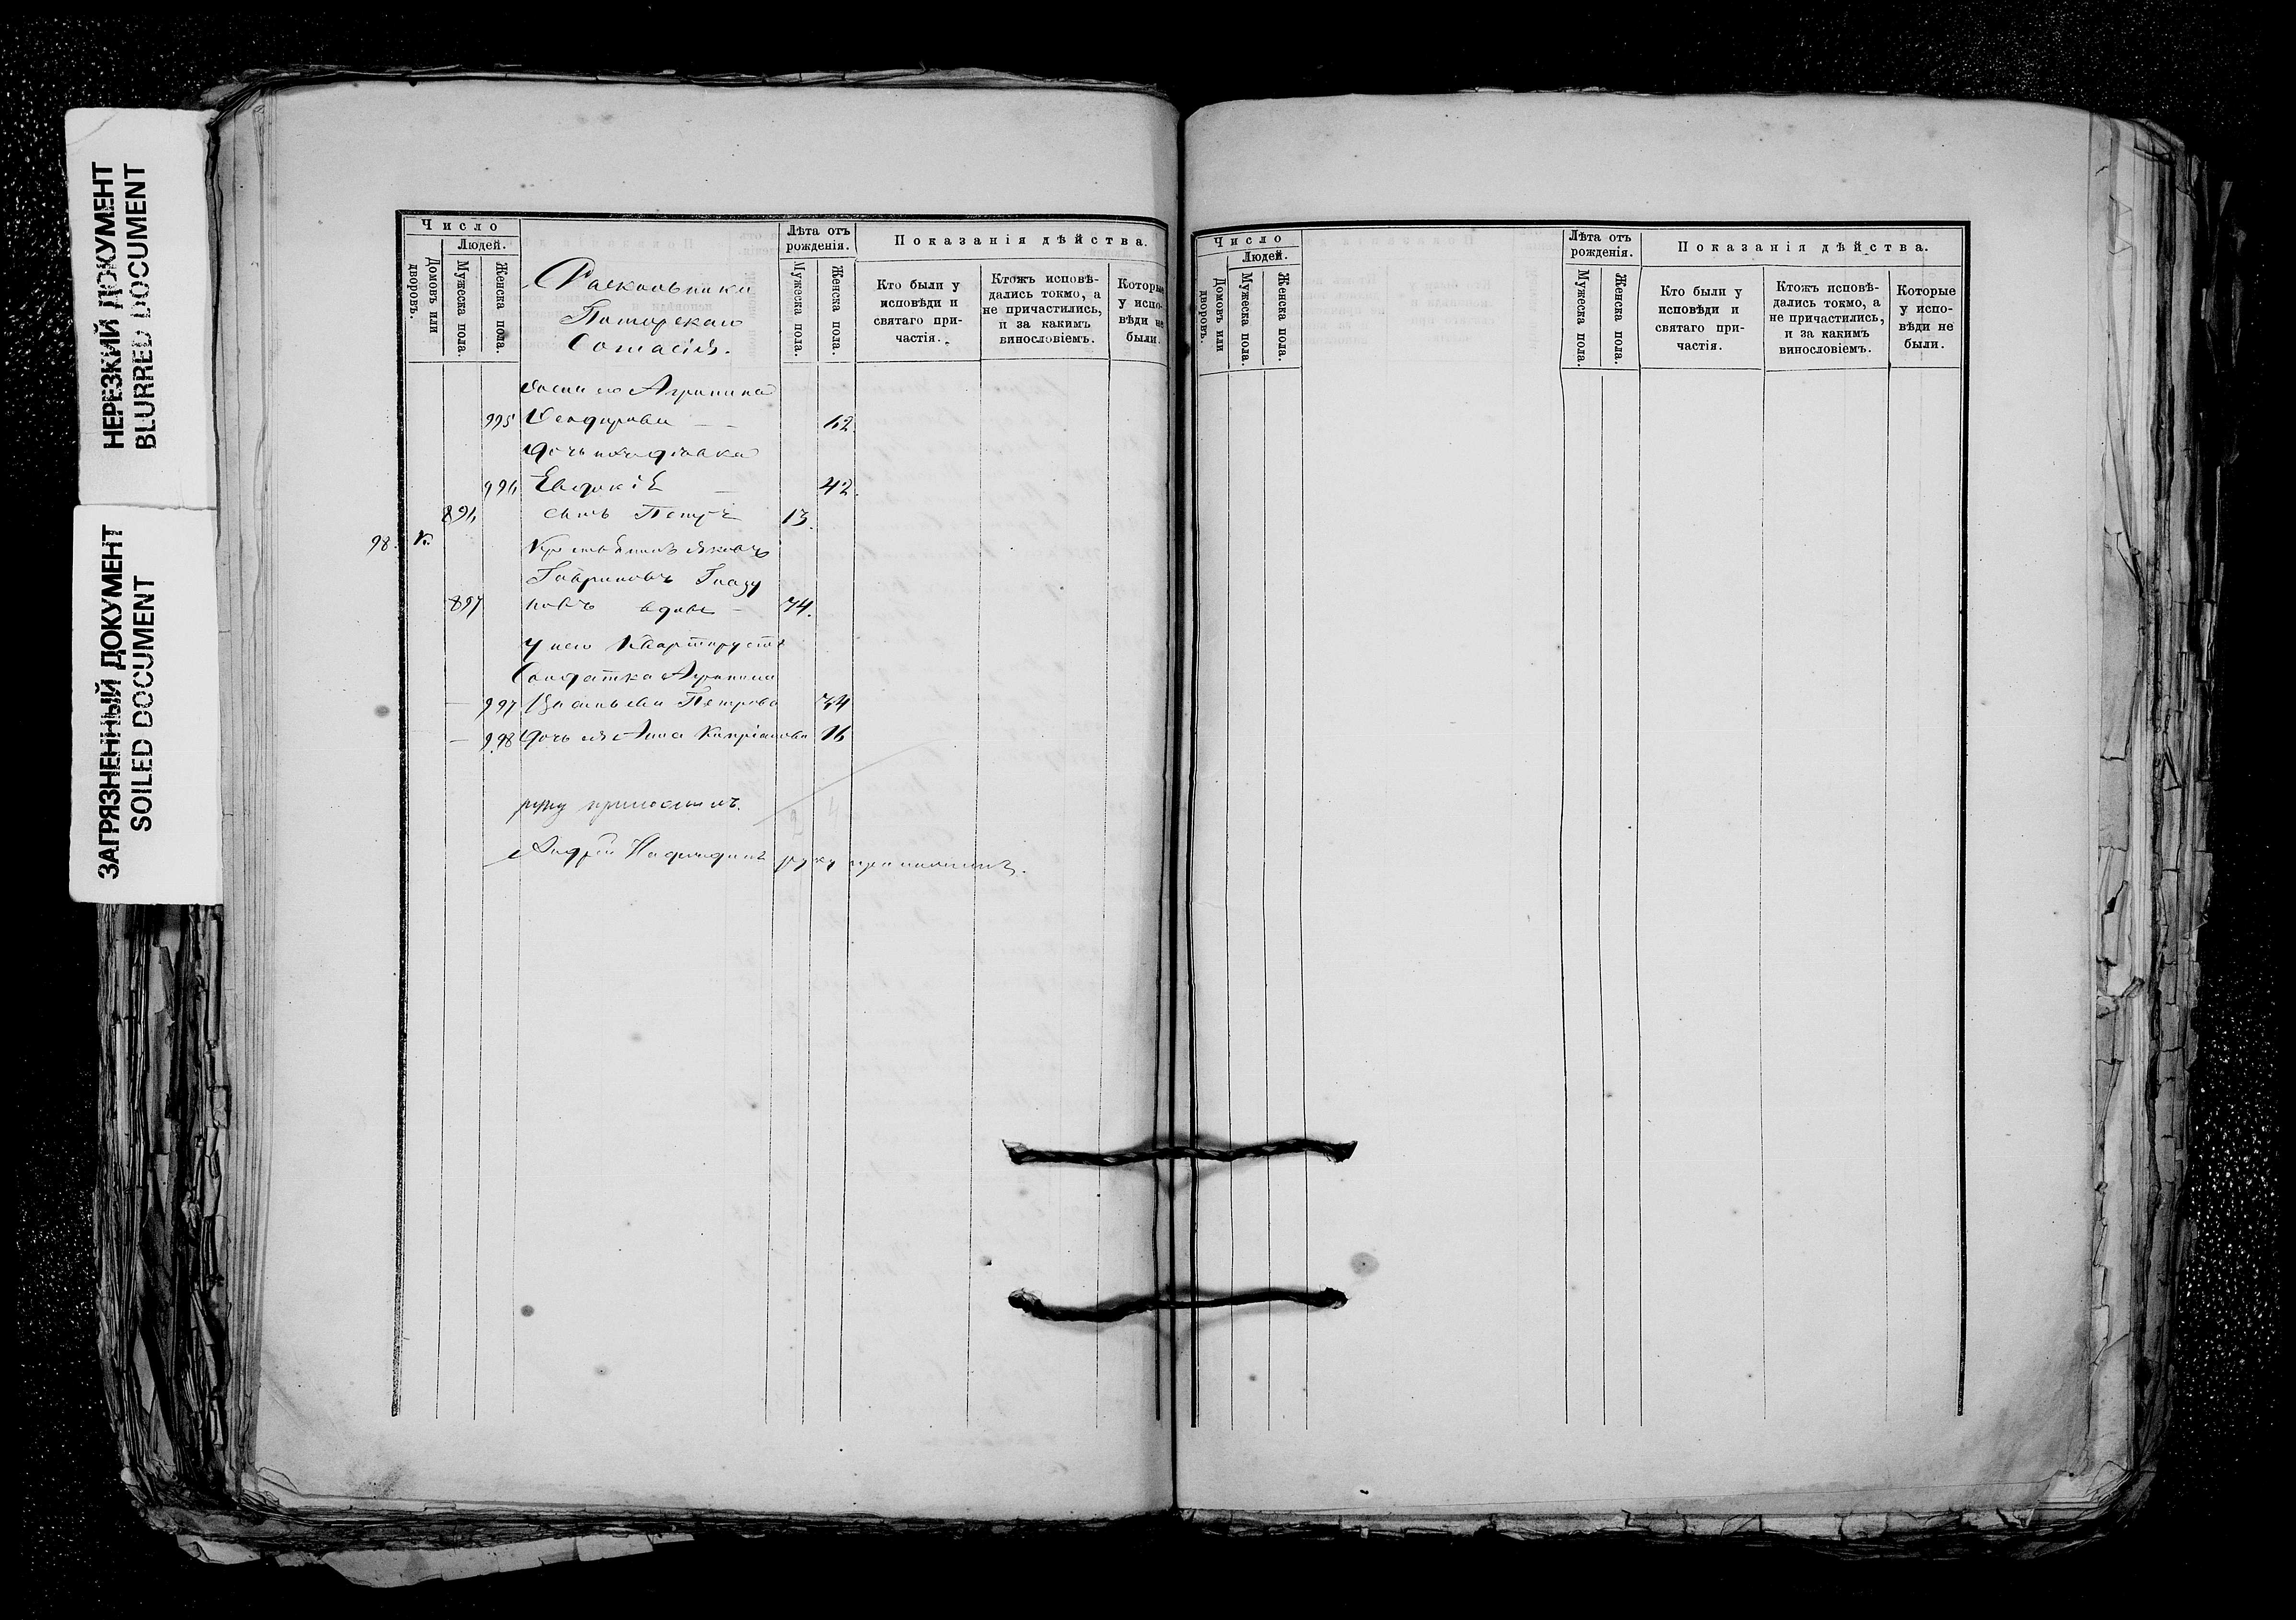 НЕРЕЗКИЙ ДОКУМЕНТ
BLURRED DOCUMENT
ЗАГРЯЗНЕННЫЙ ДОКУМЕНТ
SOILED DOCUMENT
Число
Людей.
Домовъ или дворовъ.
Мужеска пола.
Женска пола.
Раскольники
Поморскаго
Согласія.
Лѣта отъ рожденія.
Мужеска пола.
Женска пола.
Показанія дѣйства.
Кто были у исповѣди и святаго при-частія.
Ктожъ исповѣ-дались токмо, а не причастились, и за какимъ винословіемъ.
Которые у испо-вѣди не были.
Агрипина
995 Ѳеодорова 62
дочь
996 Евдокія 42.
896 сынъ Петръ 13.
98. К.
Гавриловъ Глазу
897 новъ вдовъ 74.
У него квартируетъ
Солдатка Агрипина
997 Васильева Петрова 34
998 дочь ея Анна Кипріанова 16
руку приложилъ.
Андрей руку приложилъ.
Число
Людей.
Домовъ или дворовъ.
Мужеска пола.
Женска пола.
Лѣта отъ рожденія.
Мужеска пола.
Женска пола.
Показанія дѣйства.
Кто были у исповѣди и святаго при-частія.
Ктожъ исповѣ-дались токмо, а не причастились, и за какимъ винословіемъ.
Которые у испо-вѣди не были.